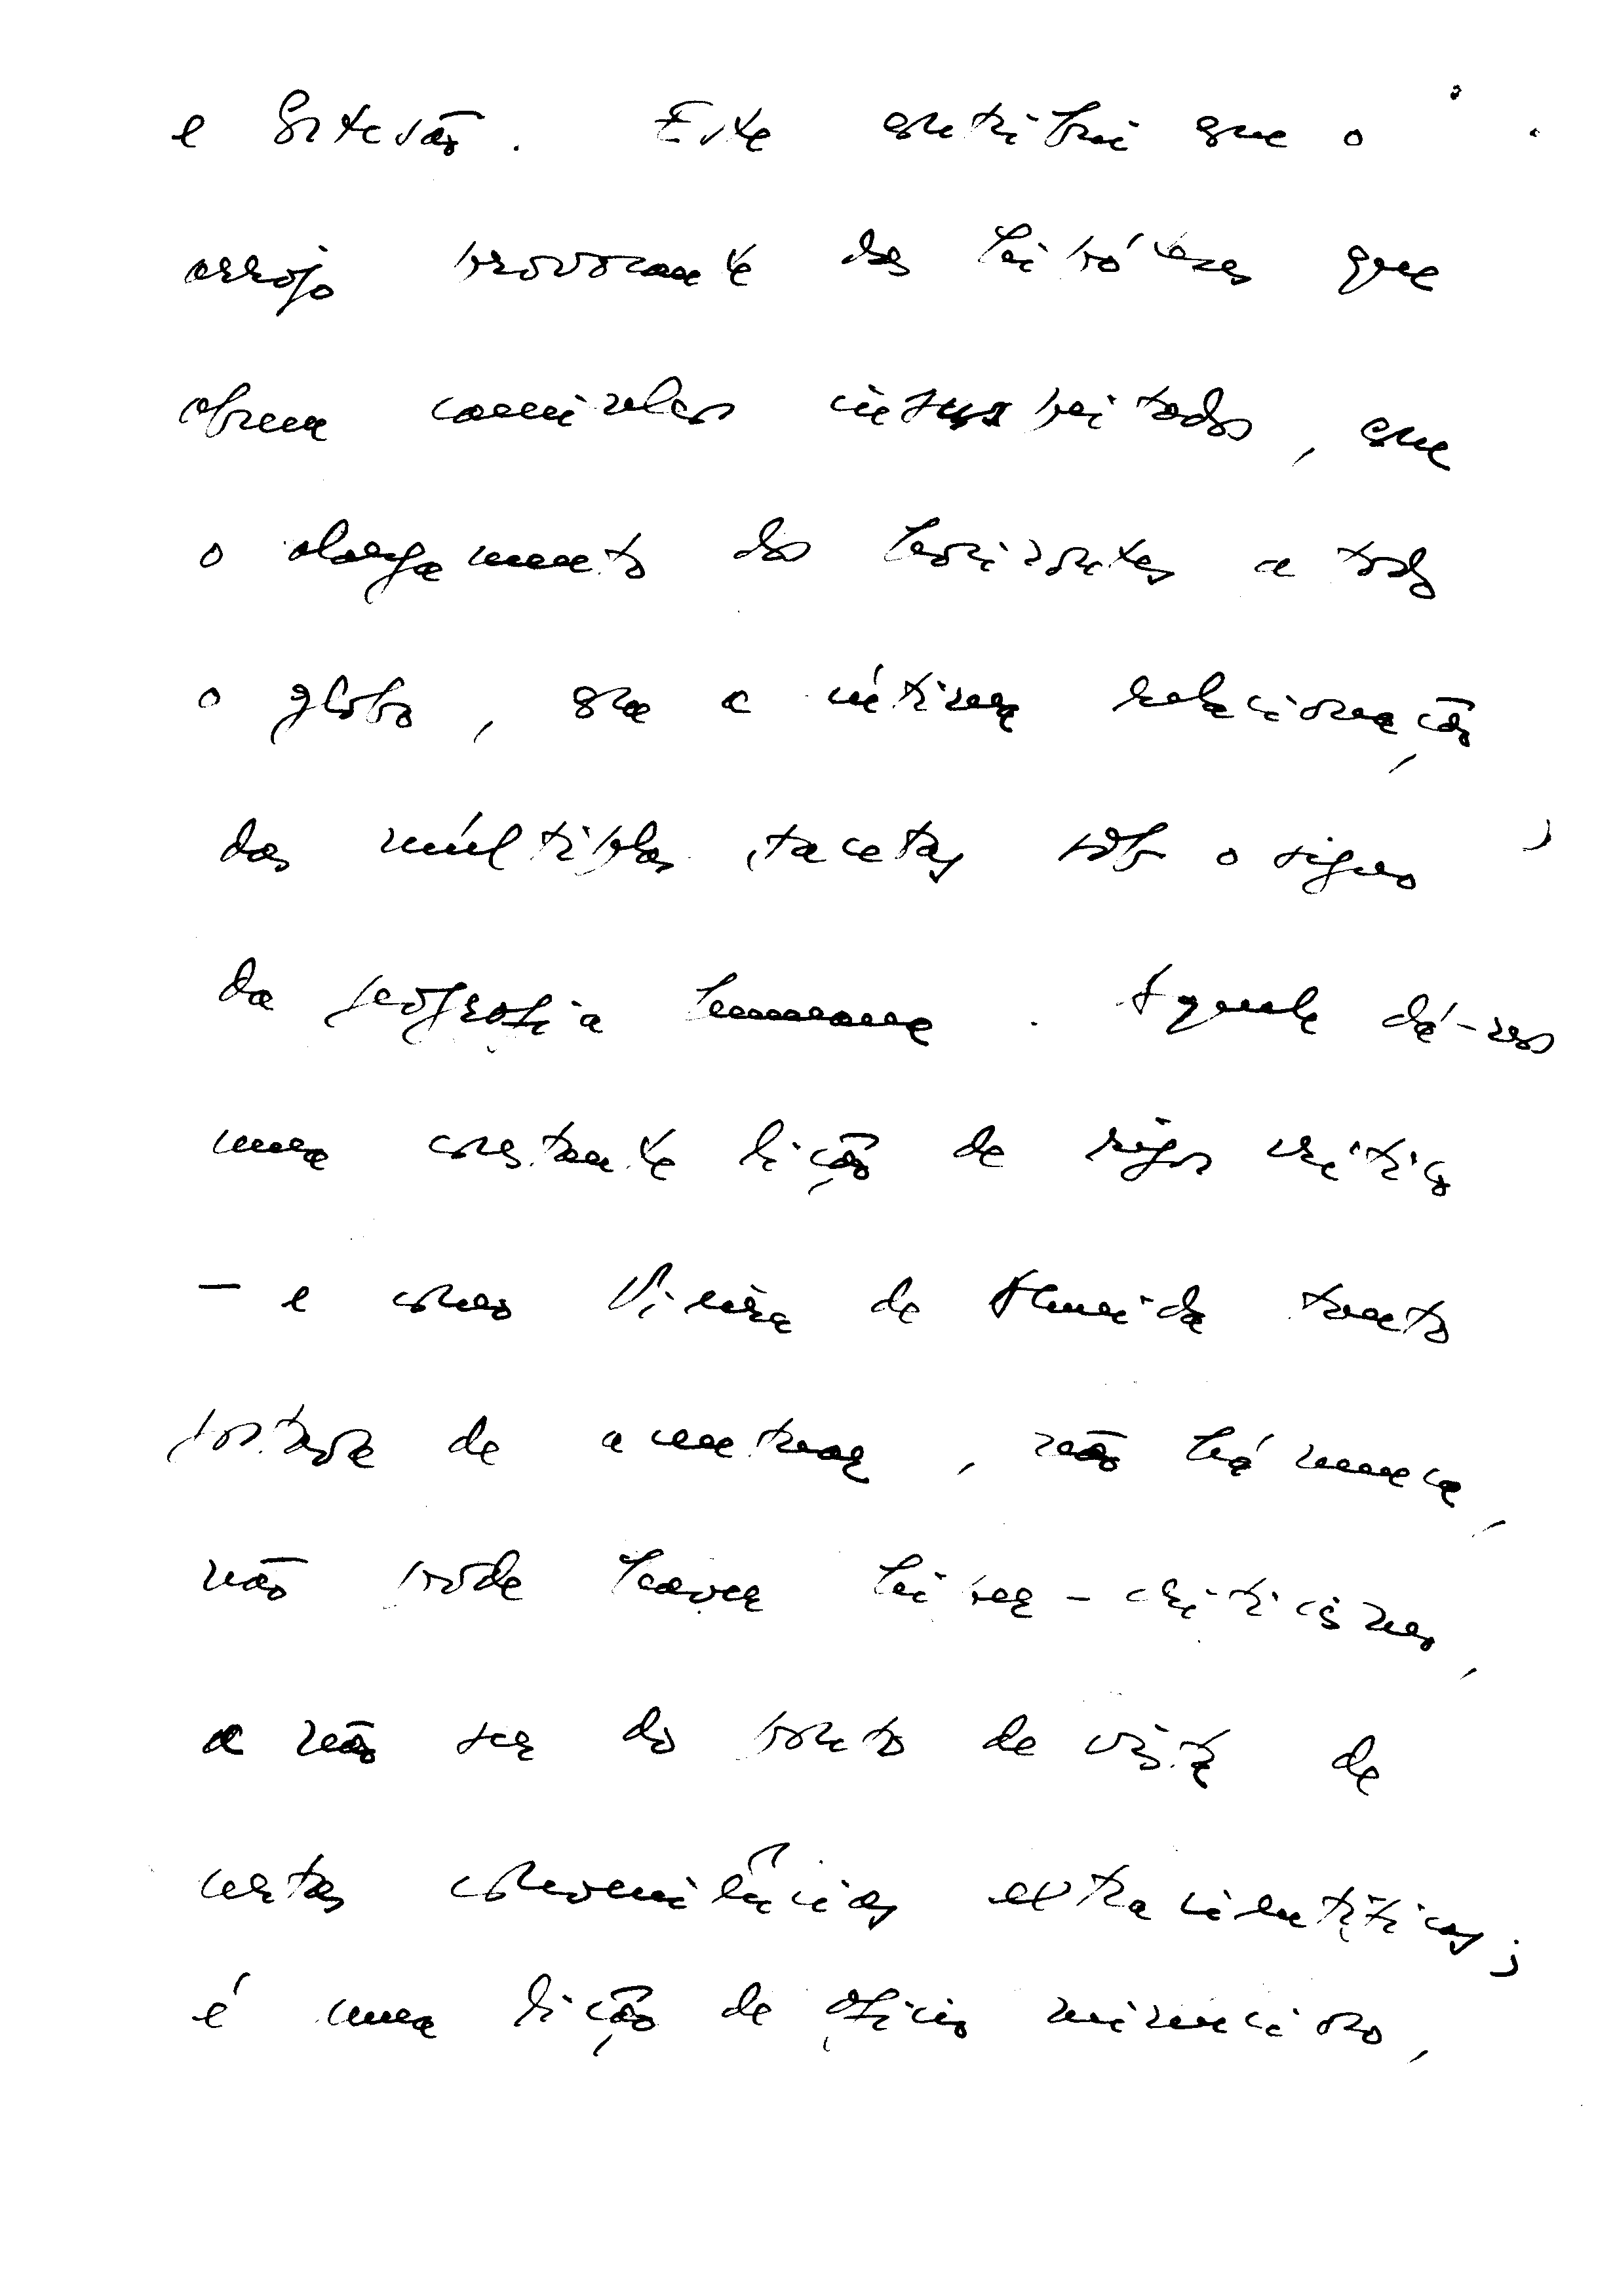 e Cortesão. Este contribui que o
arrojo provocante das hipóteses que
abrem caminhos insuspeitados, que
o alargamento dos horizontes a todo
o globo, que a íntima relacionação
das múltiplas facetas sob o signo
da geografia humana. Aquele dá-nos
uma constante lição de rigor crítico
– e como Vieira de Almeida tanto
gostava de acentuar, não há nunca,
não pode haver hiper-criticismo,
a não ser do ponto de vista de
certas conveniências extracientíficas;
é uma lição de ofício minucioso,